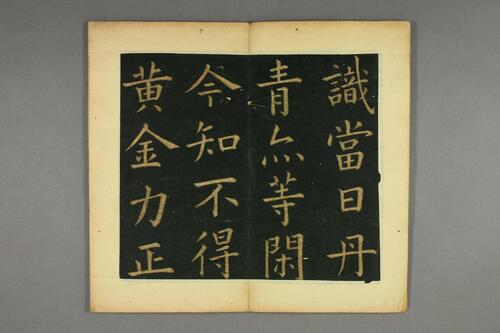 識當日丹
青亦等閑
今知不得
黄金力正